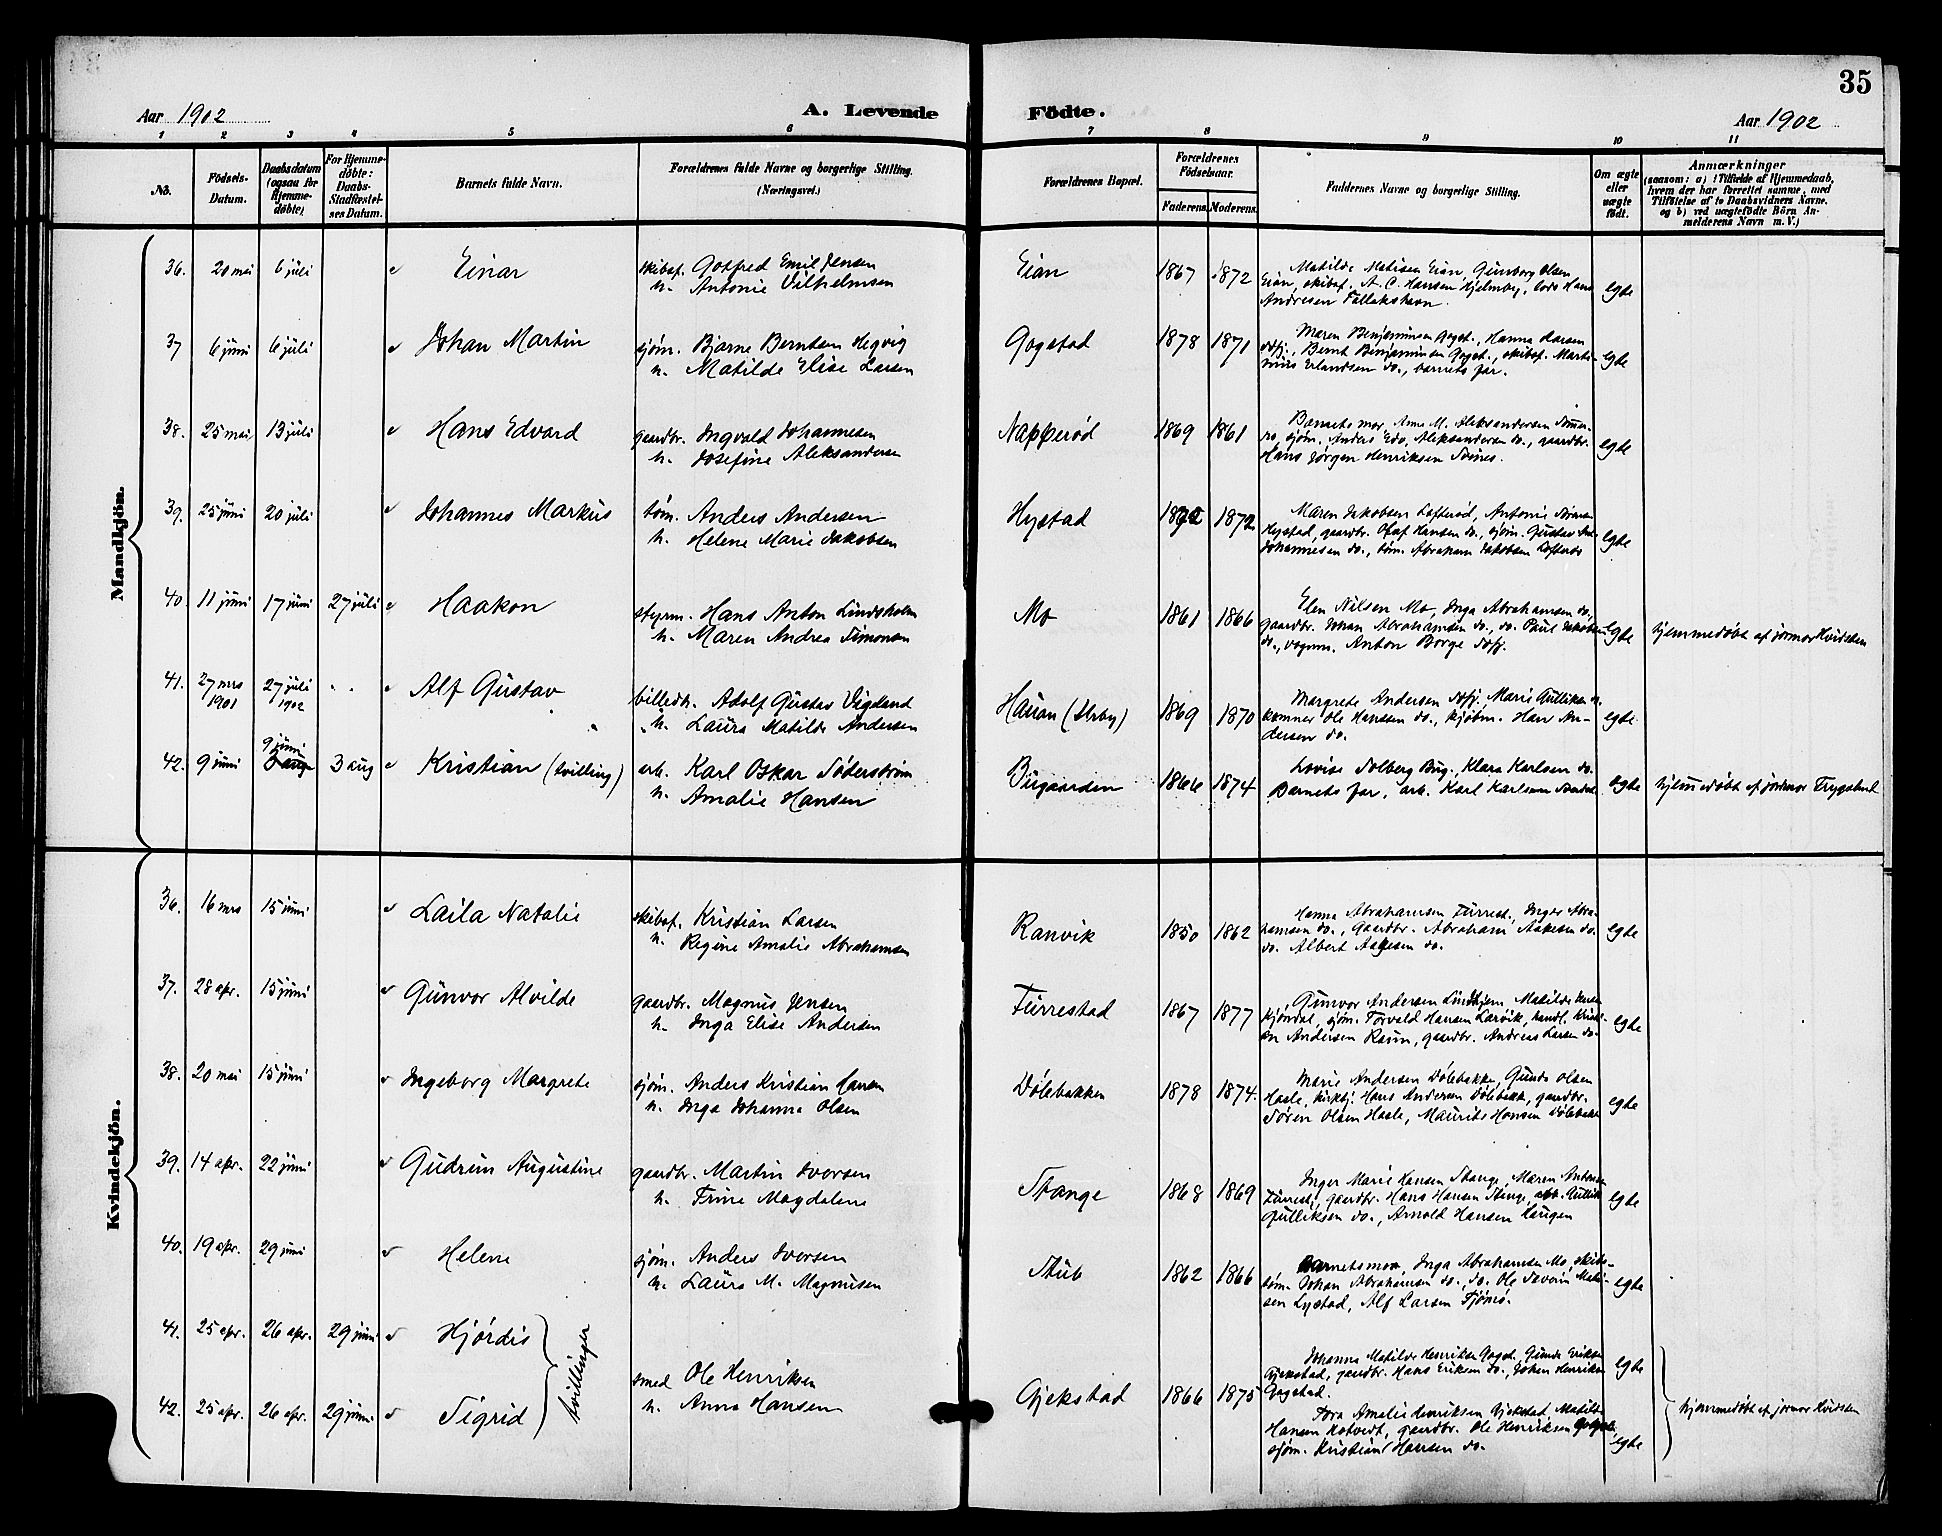 35
Aar 1902
A. Levende Födte.
Aar 1902
1 2 3 4 5 6 7 8 9 10 11
No.
Födsels-Datum.
Daabsdatum (ogsaa for Hjemmedöbte)
For Hjemmedöbte: Daabs-Stadfæstelses Datum.
Barnets fulde Navn.
Forældrenes fulde Navne og borgerlige Stilling. (Næringsvei.)
Forældrenes Bopæl.
Forældrenes Födselsaar.
Faderens. Moderens.
Faddernes Navne og borgerlige Stilling.
Om ægte eller uægte födt.
Anmærkninger
(saasom: a) i Tilfælde af Hjemmedaab,
hvem der har forrettet samme, med
Tilföielse af to Daabsvidners Navne.
og b) ved uægtefödte Börn An-
melderens Navn m. V.)
Mandkjön.
36. 20 mai 6 juli Einar
skibsf. Gotfred Emil Jensen
h. Antonie Vilhelmsen
Eian 1867 1872
Matilde Matisen Eian, Gunborg Olsen
Eian, skibsf. A. C. Hansen Hjelmbg., lods Hans
Andresen Tallakshavn.
egte
37 6 juni 6 juli Johan Martin
sjøm. Bjarne Berntsen Hegvig
h. Matilde Elise Larsen
Gogstad 1878 1871
Maren Benjaminsen Gogst., Hanna Larsen
Sdfj., Bernt Benjaminsen Gogst., skibsf. Marti-
nius Erlandsen do., barnets far.
egte
38. 25 mai 13 juli Hans Edvard
gaardbr. Ingvald Johannesen
h. Josefine Aleksandersen
Napperød 1869 1861
Barnets mor, Anne M. Aleksandersen
sjøm. Anders Edv. Aleksandersen do., gaardbr.
Hans Jørgen Henriksen
egte
39. 25 juni 20 juli Johannes Markus
tøm. Anders Andersen
h. Helene Marie Jakobsen
Hystad 1872 1872
Maren Jakobsen Lofterød, Antonie
Hystad, gaardbr. Olaf Hansen do., sjøm. Gustav
Johannesen do., tøm. Abraham Jakobsen
egte
40. 11 juni 17 juni 27 juli Haakon
styrm. Hans Anton Lindsholm
h. Maren Andrea Simonsen
Mo 1861 1866
Elen Nilsen Mo, Inga Abrahamsen do.,
gaardbr. Johan Abrahamsen do., do. Paul Jakobsen
do., vognm. Anton Borge Sdfj.
egte hjemmedøbt af jormor Hvidsten
41. 27 mrs 1901 27 juli 1902 " " Alf Gustav
billedh. Adolf Gustav Vigeland
h. Laura Matilde Andersen
Hauan (Urby) 1869 1870
Margrete Andersen Sdfj., Marie Gulliksen,
kemner Ole Hanssen do., kjøbm. Hans An-
dersen do.
egte
42. 9 juni 9 juni 3 aug 3 aug Kristian (tvilling)
arb. Karl Oskar Søderstrøm
h. Amalie Hansen
Bugaarden 1866 1874
Lovise Solberg Bug., Klara Karlsen do.
Barnets far, arb. Karl Karlsen
egte hjemmedøbt af jordmor Trygstad
Kvindekjön.
36. 16 mrs 15 juni Laila Natalie
skibsf. Kristian Larsen
h. Regine Amalie Abrahamsen
Ranvik 1850 1862
Hanna Abrahamsen Furrest., Inger Abra-
hamsen do., gaardbr. Abraham Aakesen do.
do. Albert Aakesen do.
egte
37. 28 apr. 15 juni Gunvor Alvilde
gaardbr. Magnus Jensen
h. Inga Elise Andersen
Furrestad 1867 1877
Gunvor Andersen Lindhjem, Matilde
Kjøndal, sjøm. Torvald Hansen Larvik, handl. Kristi-
an Andersen Raun, gaardbr. Andreas Larsen do.
egte
38. 20 mai 15 juni Ingeborg Margrete
sjøm. Anders Kristian Hansen
h. Inga Johanna Olsen
Dølebakken 1878 1874.
Marie Andersen Dølebakke, Gunda Olsen
Hasle, kirktj. Hans Andersen Dølebakk, gaardbr.
Søren Olsen Hasle, Maurits Hansen Dølebakk
egte
39. 14 apr. 22 juni Gudrun Augustine
gaardbr. Martin Iversen
h. Trine Magdelene
Stange 1868 1869
Inger Marie Hansen Stange, Maren Antonsen
Furrest., gaardbr. Hans Hansen Stange, arb. Gullik
Gulliksen do., Arnold Hansen Haugen
egte
40. 19 apr. 29 juni Helene
sjøm. Anders Iversen
h. Laura M. Magnusen
Stub 1862 1866
Barnets mor, Inga Abrahamsen Mo, skibs-
tøm. Johan Abrahamsen do., do. Ole Severin Mati-
sen Lystad, Alf Larsen Tjømø.
egte
41. 25 apr. 26 apr. 29 juni Hjørdis
42. 25 apr. 26 apr. 29 juni Sigrid
tvillinger
smed Ole Henriksen
h. Anna Hansen
Gjekstad 1866 1875
Johanna Matilde Henriksen Gogst. Gunda Eriksen
Gjekstad, gaardbr. Hans Eriksen do., Johan Henriksen
Gogstad.
egte
Tora Amalie Henriksen Gjekstad, Matilde
Hansen Hotvedt, gaardbr. Ole Henriksen Gogst.,
sjøm. Kristian Hansen do.
egte
hjemmedøbt af jormor Hvidsten